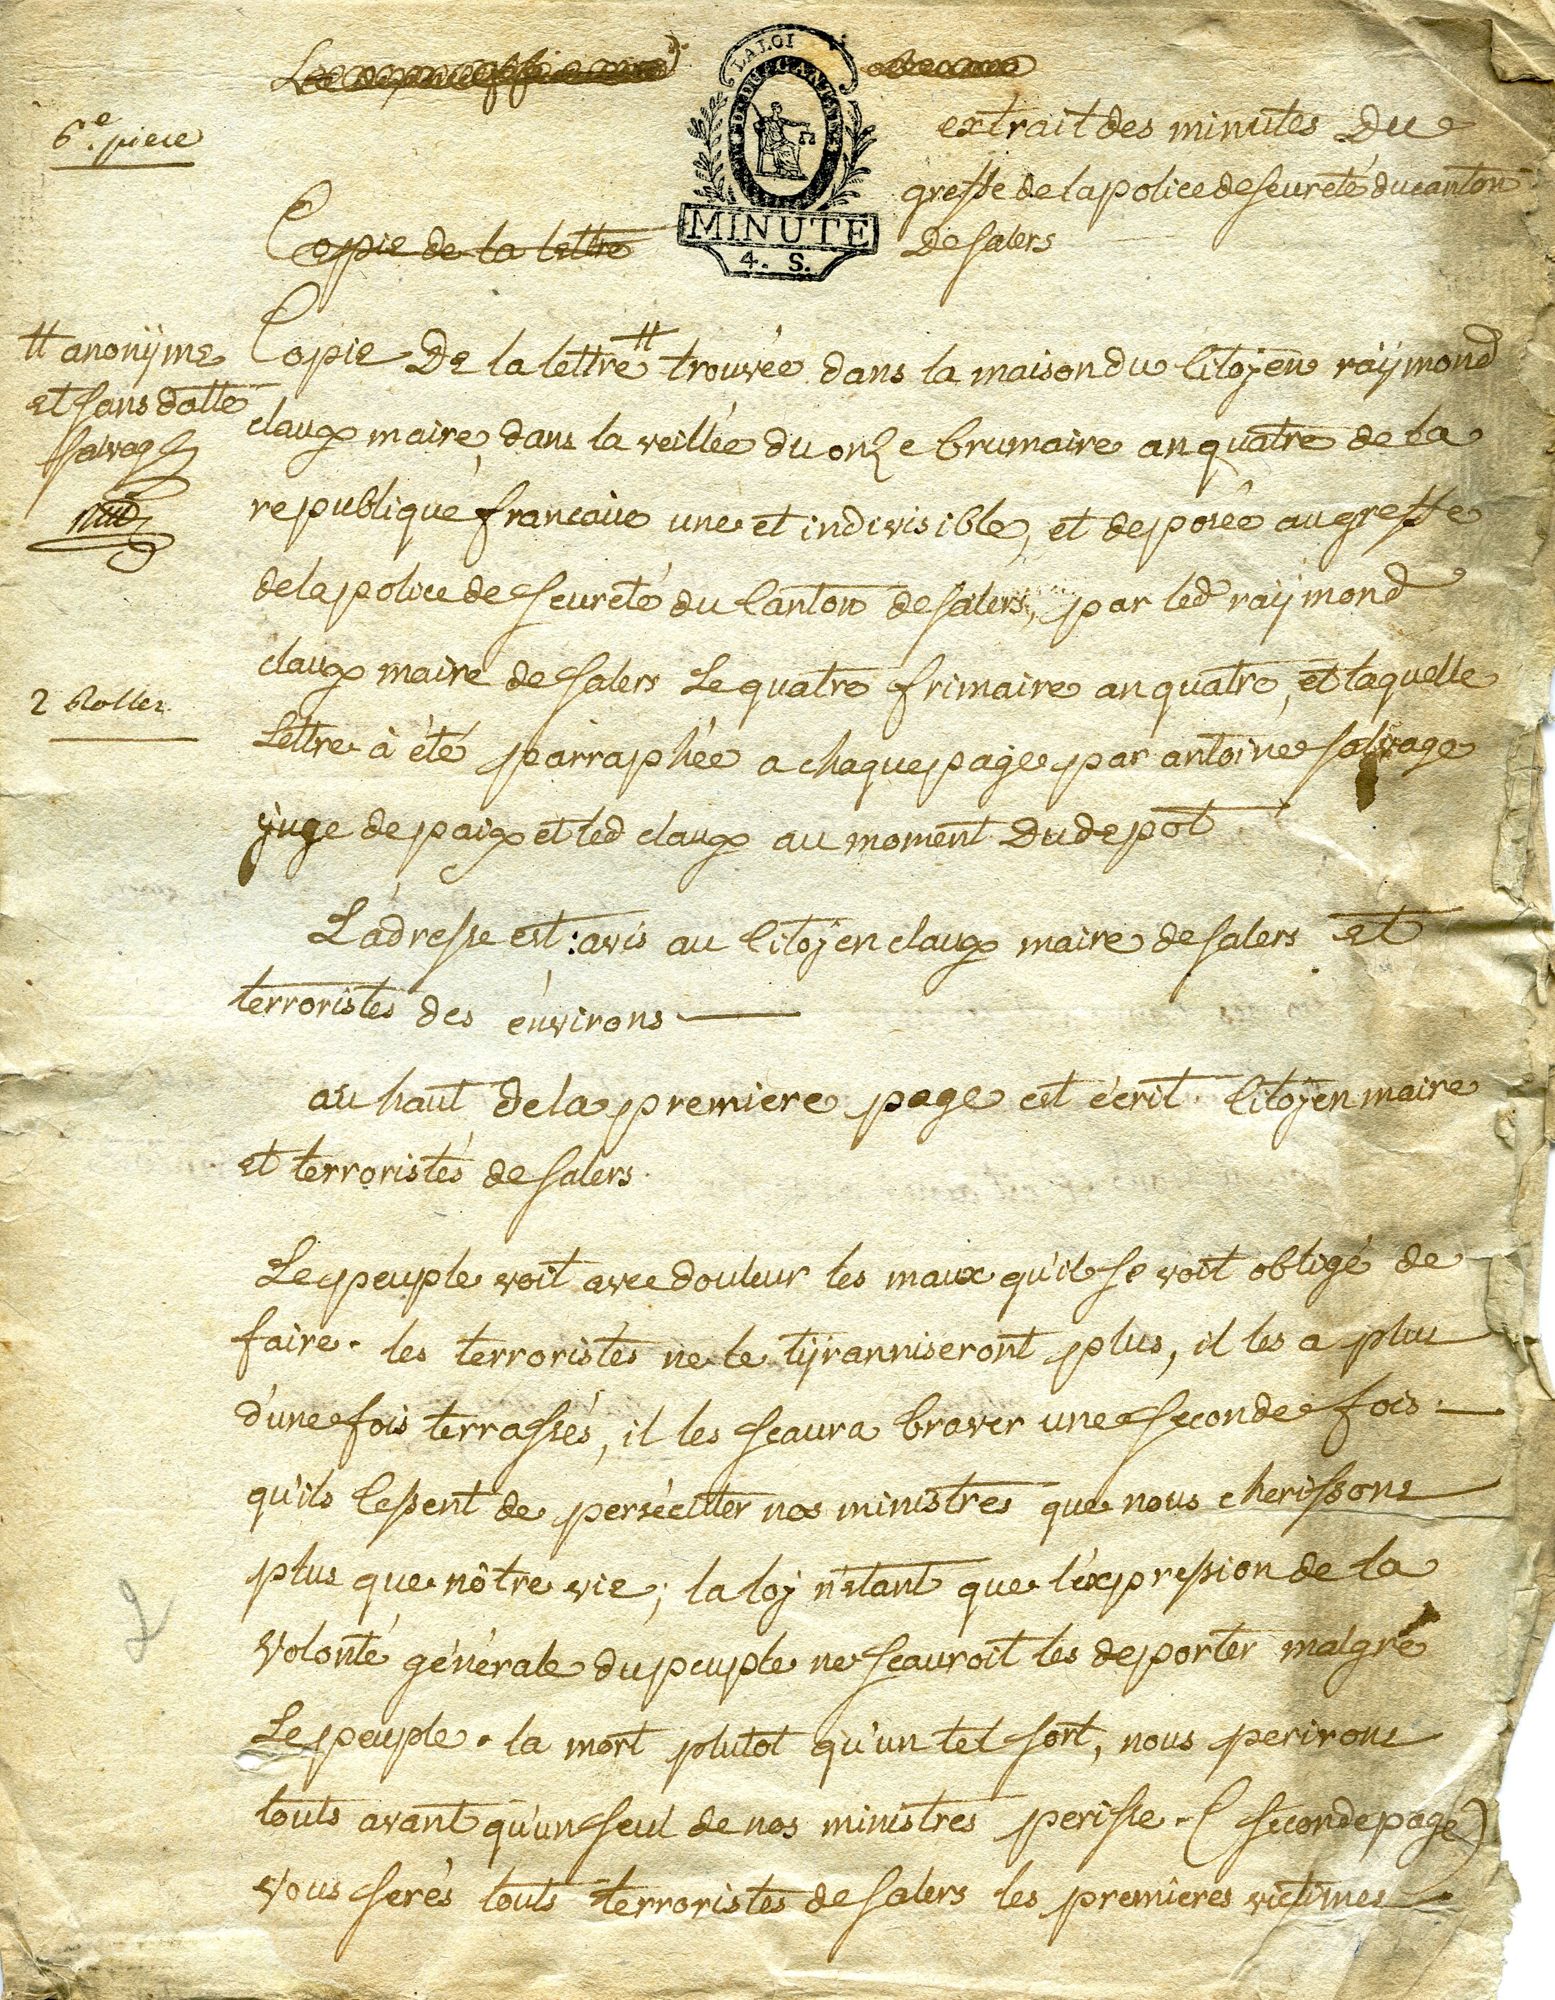 6.e piece
LA LOI
MINUTE
4. S.
extrait des minutes du
greffe de la police de seureté du canton
de salers
Copie de la lettre
# anonÿme
et sans datte
salvage
Copie de la lettre # trouvée dans la maison du Citoÿen raÿmond
claux maire, dans la veillée du onze brumaire an quatre de la
republique francaise une et indivisible, et deposée au greffe
de la police de seureté du Canton de salers, par led raÿmond
claux maire de salers Le quatre frimaire an quatre, et laquelle
Lettre à été parraphée a chaque page par antoine salvage
juge de paix et led claux au moment du depot
2 Rolles
L'adresse est : avis au Citoÿen claux maire de salers et
terroristes des énvirons
au haut de la premiere page est écrit Citoÿen maire
et terroristés de salers
Le peuple voit avec douleur les maux qu'il se voit obligé de
faire. les terroristés ne le tÿranniseront plus, il les a plus
d'une fois terrassés, il les scaura braver une seconde fois
qu'ils Cessent de persécutter nos ministres que nous cherissons
plus que nôtre vie; la loÿ n'etant que l'éxpression de la
volonté générale du peuple ne scauroit les deporter malgré
Le peuple. la mort plutot qu'un tel sort, nous perirons
touts avant qu'un seul de nos ministres perisse. (seconde page)
vous serés touts terroristes de salers les premières victimes
2